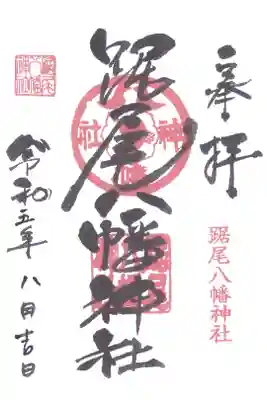 奉拝
踞尾八幡神社
踞尾八幡神社
令和五年八月吉日